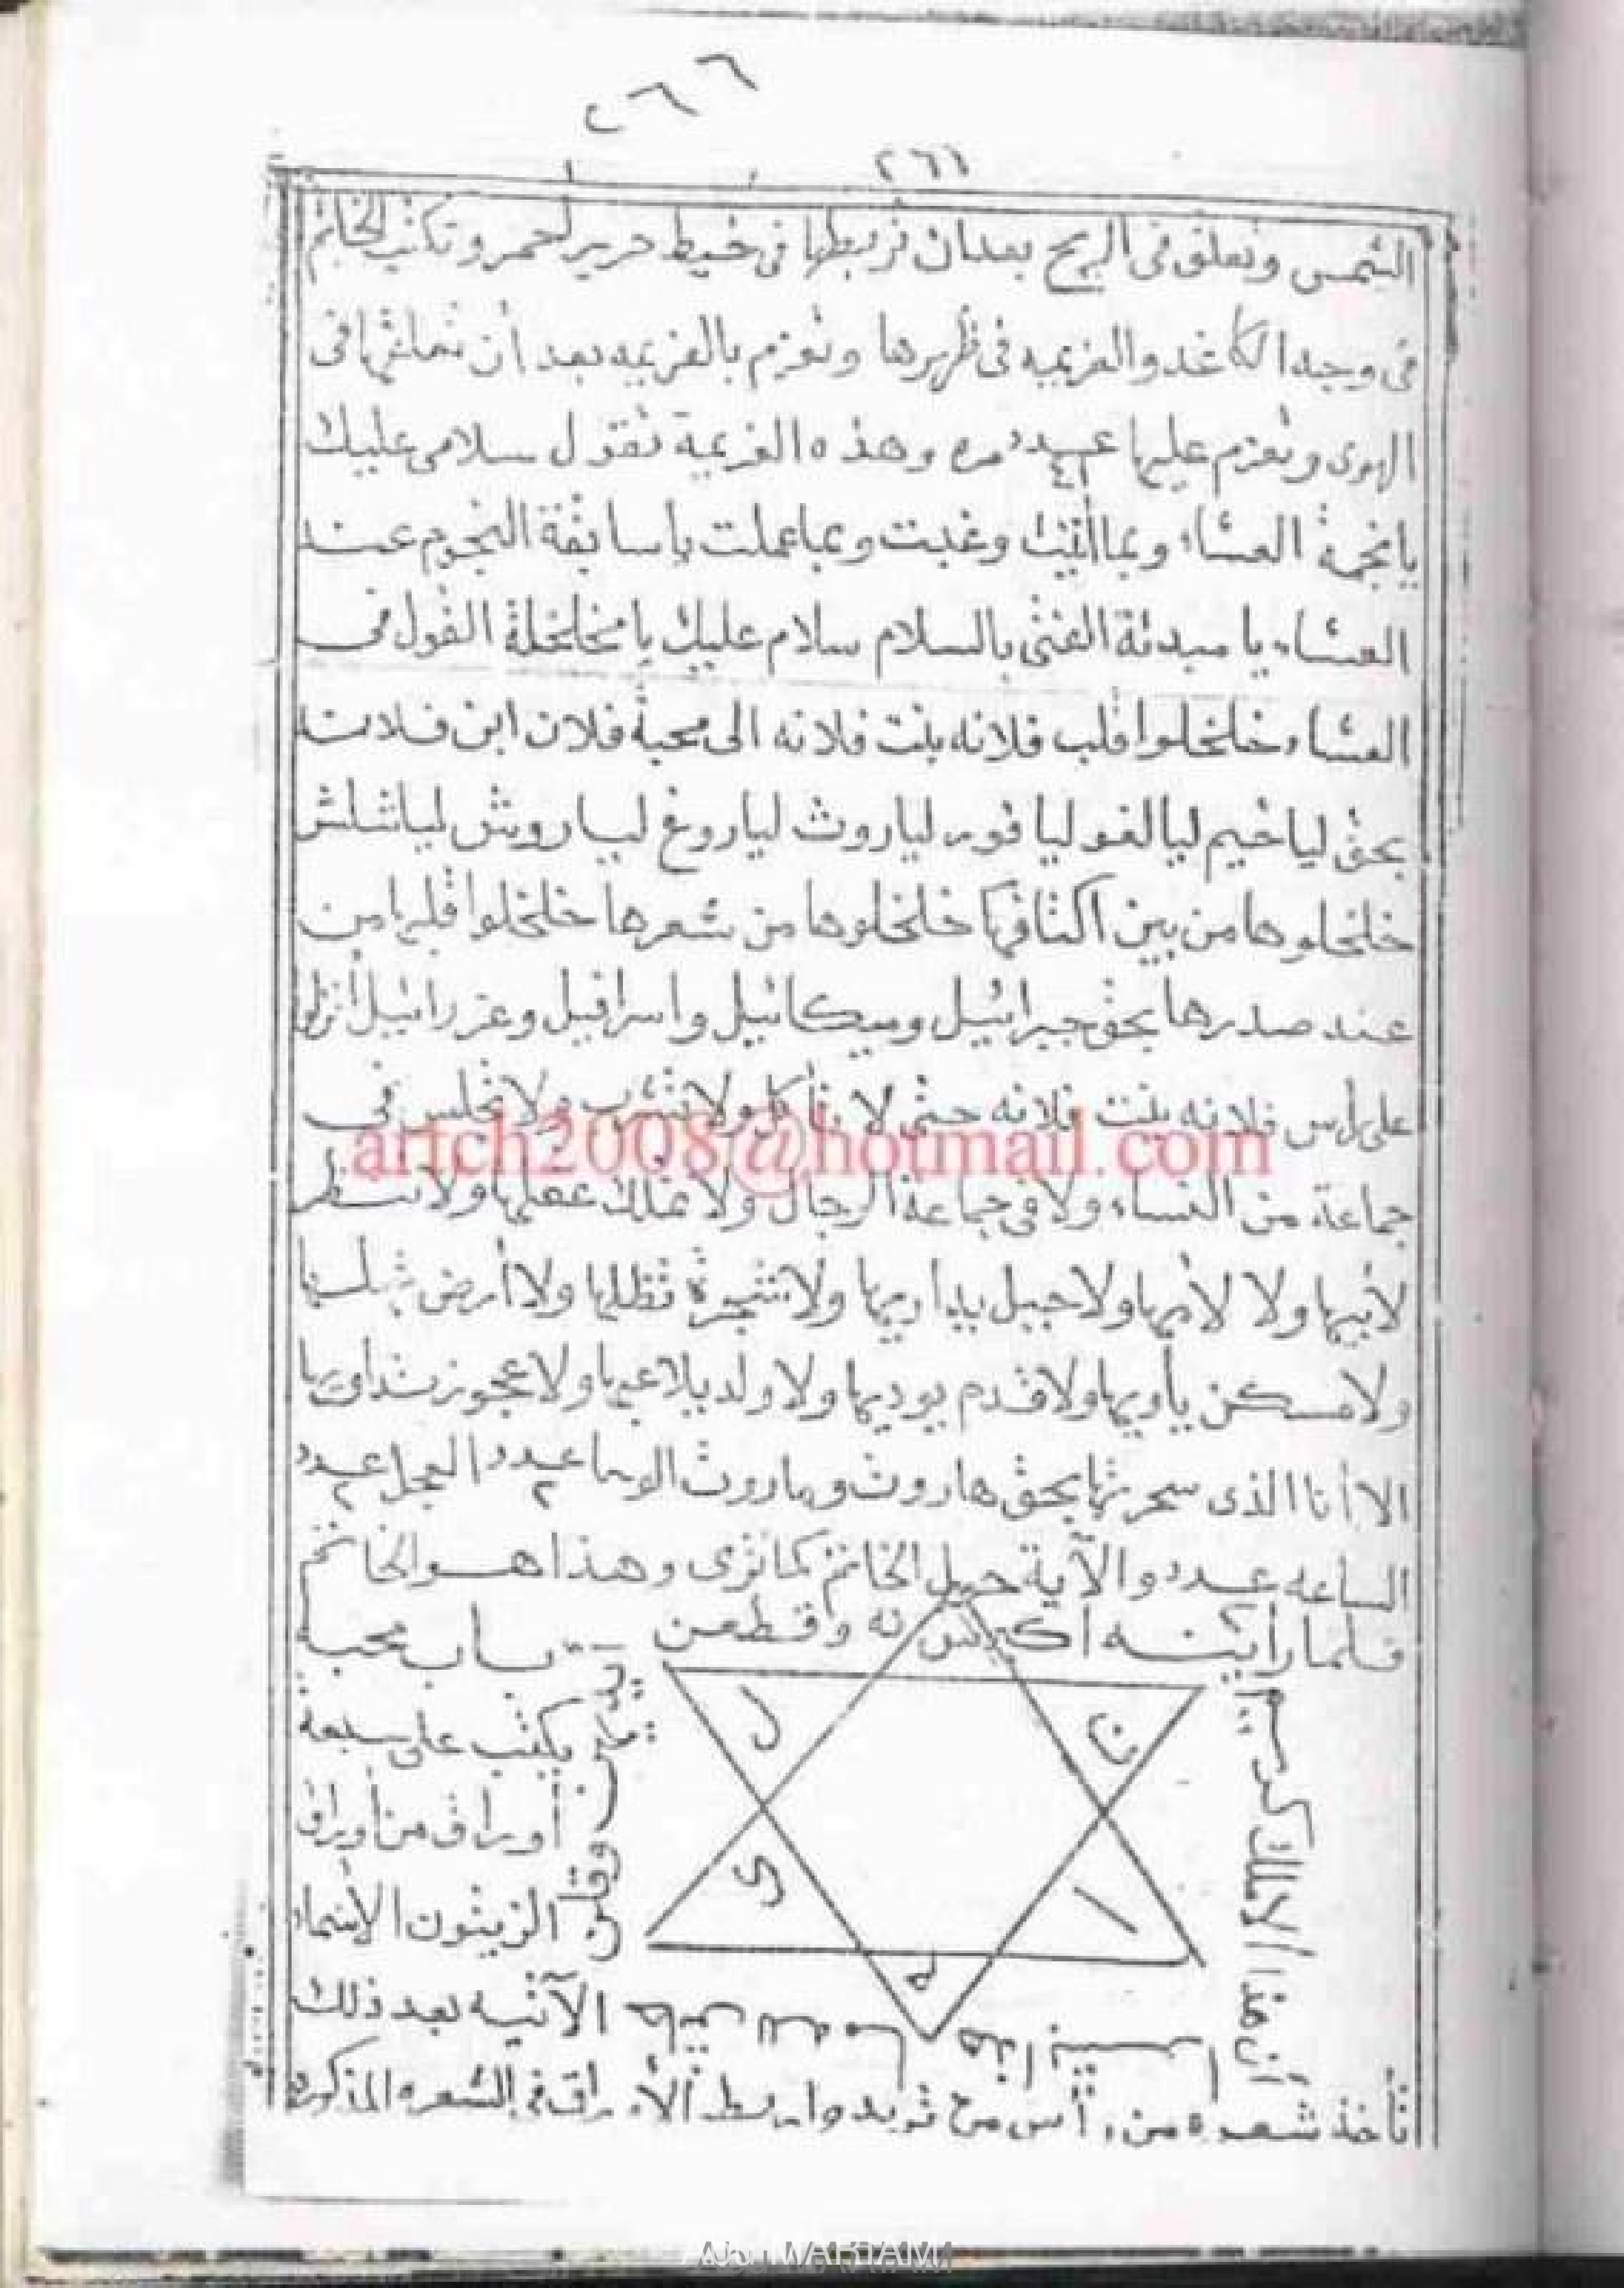 ٢٦٦
٢٦١
الشمس وتعلق فى الريح بعدان تربطها فى خيط حرير أحمر وتكتب الخاتم
فى وجه الكاغد والعزيمه فى ظهرها وتعزم بالعزيمه بعد أن تعلقها فى
الهوى وتعزم عليها عدد مره وهذه العزيمة تقول سلامى عليك
يا نجمة العشاء وبما وغبت وبما عملت يا سابقة النجوم عند
العشاء يا مبدئة بالسلام سلام عليك يا مخلخلة القول فى
العشاء خلخلوا قلب فلانه بنت فلانه الى محبة فلان ابن فلانه
بحق لياخيم ليالغو ليافور لياروث لياروغ لياروش لياشلش
خلخلوها من بين اكتافها خلخلوها من شعرها خلخلوا قلبها من
عند صدرها بحق جبرائيل وميكائيل واسرافيل وعزرائيل أنزلوا
على رأس فلانه بنت فلانه حتى لا تأكل ولا تشرب ولا تجلس فى
artch2008@hotmail.com
جماعة من النساء ولا فى جماعة الرجال ولا تملك عقلها ولا تنظر
لأبيها ولا لأمها ولا جبل يداريها ولا شجرة تظلها ولا أرض
ولا مسكن يأويها ولا قدم يوديها ولا ولد يلاعبها ولا عجوز تداويها
الا أنا الذى سحرتها بحق هاروت وماروت الوحا عدد ٢ العجل عدد ٢
الساعه عدد والآية حول الخاتم كما ترى وهذا هو الخاتم
فلما رأينه أكبرنه وقطعن
باب محبة
أيديهن وقلن
يكتب على سبعة
أوراق من أوراق
الزيتون الأسماء
الآتيه بعد ذلك
حاش لله ما هذا بشرا
إن هذا إلا ملك كريم
ل
ن
ى
ا
ه
تأخذ شعره من رأس من تريد واربط الأوراق فى الشعره المذكوره
Abu MARIAM